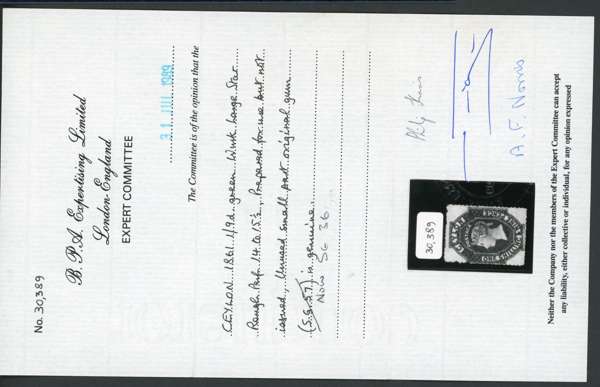 No. 30,389
B. P. A. Expertising Limited
London-England
EXPERT COMMITTEE
31 JUL 1989
The Committee is of the opinion that the
CEYLON 1861 1/9d green Wmk Large Star
Rough Perf. 14 to 15½, Prepared for use but not
issued, Unused small part original gum
(S.G. 37) is genuine.
Now SG 36
30,389
CEYLON
ONE SHILLING
A. F. Norris
Neither the Company nor the members of the Expert Committee can accept
any liability, either collective or individual, for any opinion expressed